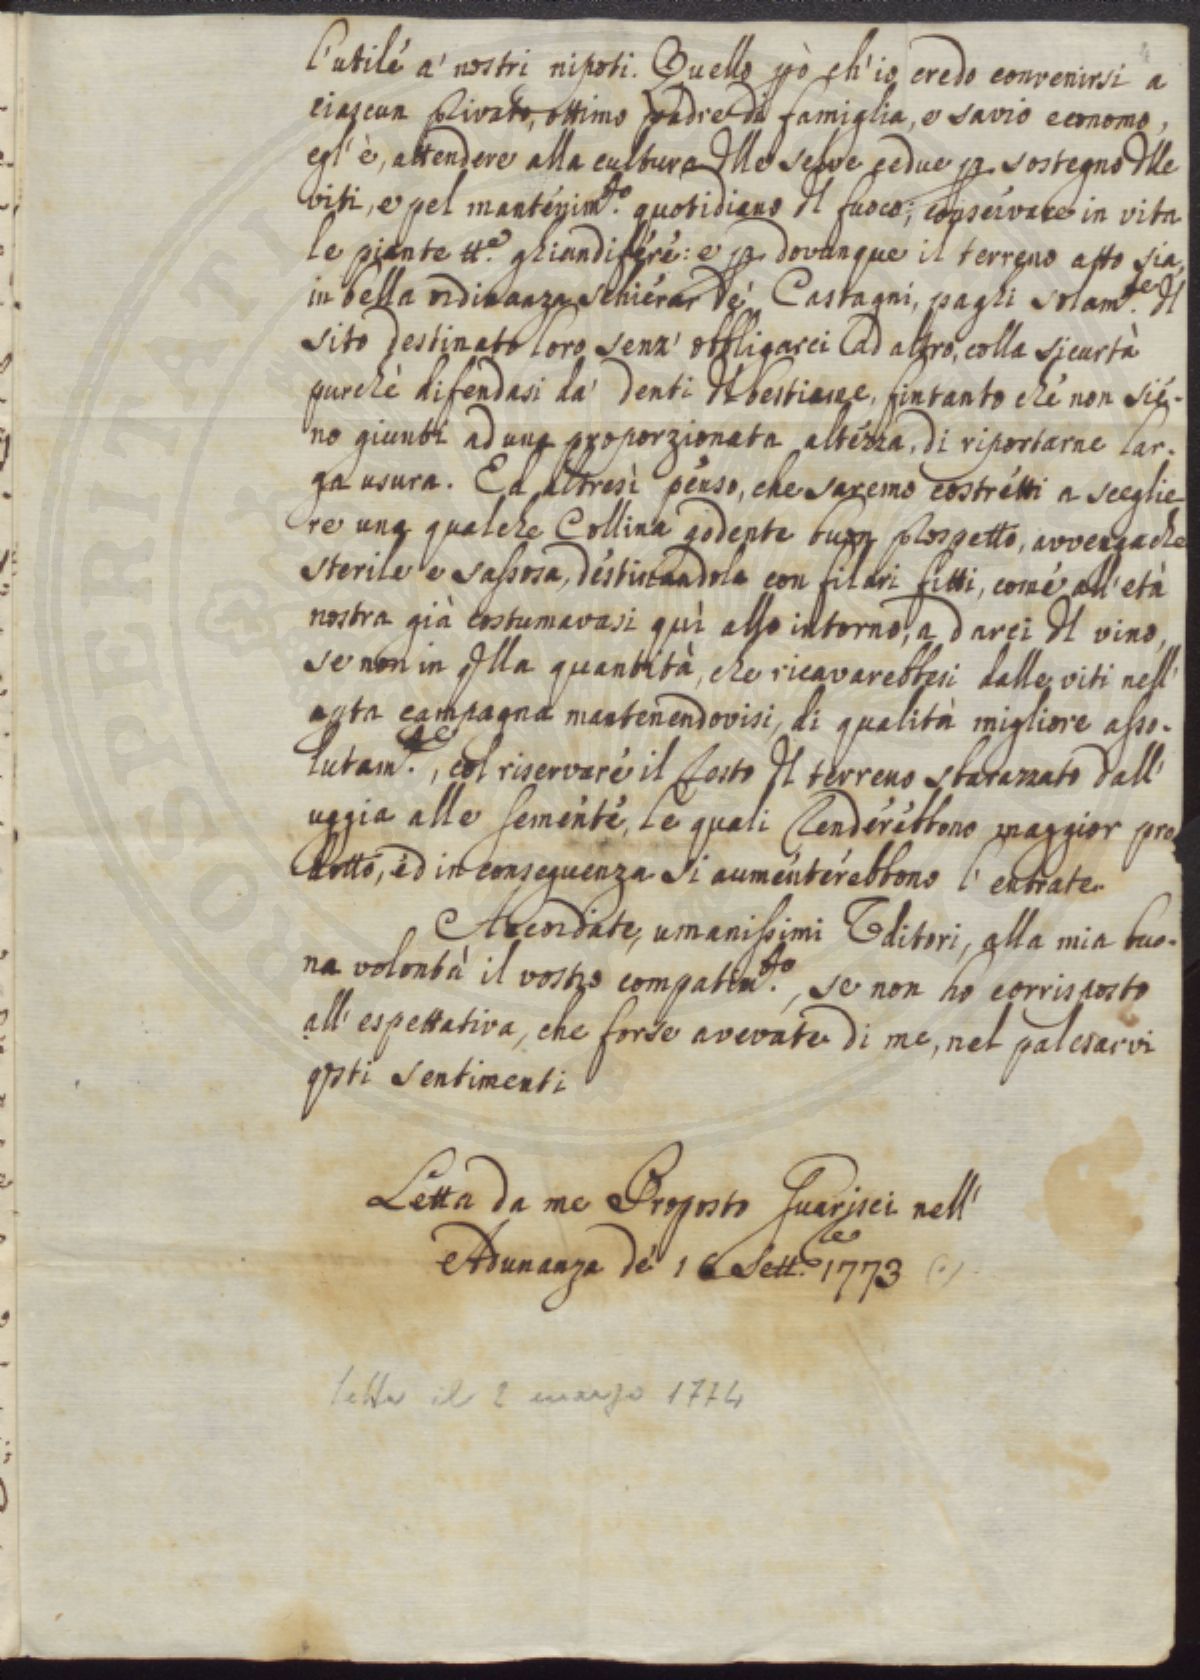 l'utile a' nostri nipoti. Quello pò ch'io credo convenirsi a
ciascun Pivato, ottimo padre di famiglia, e savio economo,
egl'è, attendere alla cultura dlle selve cedue p sostegno dlle
viti, e pel mantenim.to quotidiano dl fuoco; conservare in vita
le piante tt.e ghiandifere: e p dovunque il terreno atto sia,
in bella ordinanza schierar de' Castagni, paghi solam.te dl
sito destinato loro senz' obbligarci ad altro, colla sicurtà
purchè difendasi da' denti dl bestiame, fintanto che non sie-
no giunti ad una proporzionata altezza, di riportarne lar-
ga usura. Ed altresì penso, che saremo costretti a sceglie
re una qualche Collina godente buon Pospetto, avvengache
sterile e sassosa, destinandola con filari fitti, come all'età
nostra già costumavasi quì allo intorno, a darci dl vino,
se non in qlla quantità, che ricavarebbesi dalle viti nell'
apta campagna mantenendovisi, di qualità migliore asso-
lutam.te, col riservare il resto dl terreno sbarazzato dall'
uggia alle semente, le quali renderebbono maggior pro
dotto, ed in conseguenza si aumenterebbono l'entrate.
Accordate, umanissimi Uditori, alla mia buo-
na volontà il vostro compatim.to, se non ho corrisposto
all'espettativa, che forse avevate di me, nel palesarvi
qsti sentimenti
Letta da me Proposto Guarisci nell'
Adunanza de' 1 Sett.re 1773
letta il 2 marzo 1774
PROSPERITATI